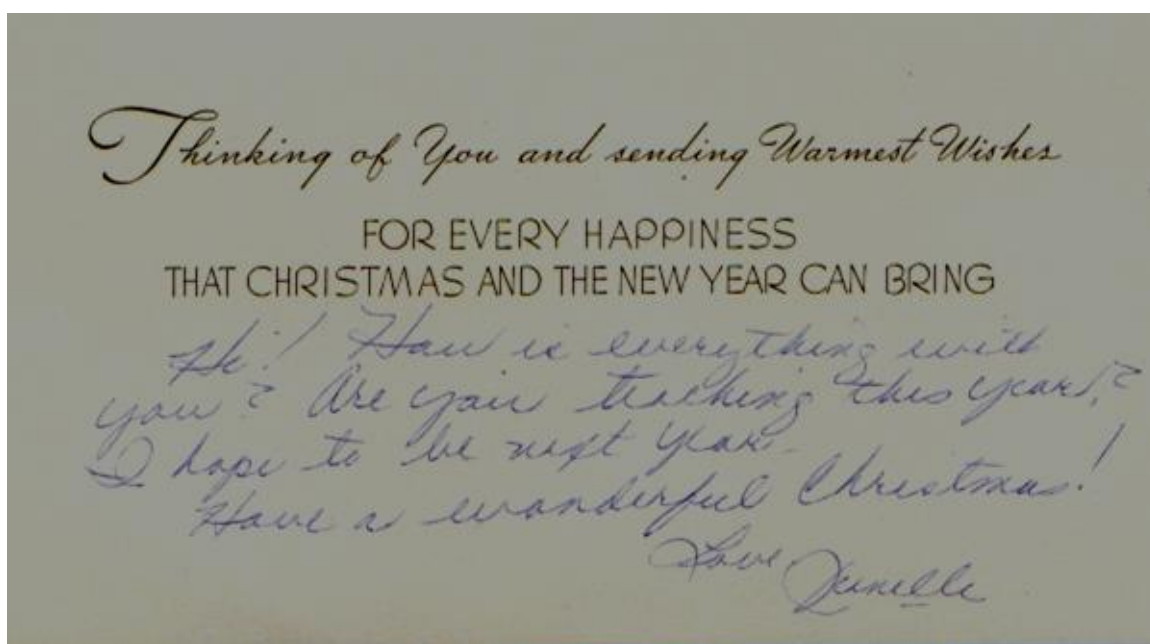 Thinking of You and sending Warmest Wishes
FOR EVERY HAPPINESS
THAT CHRISTMAS AND THE NEW YEAR CAN BRING
Hi! How is everything with
you? Are you teaching this year?
I hope to be next year.
Have a wonderful Christmas!
Love